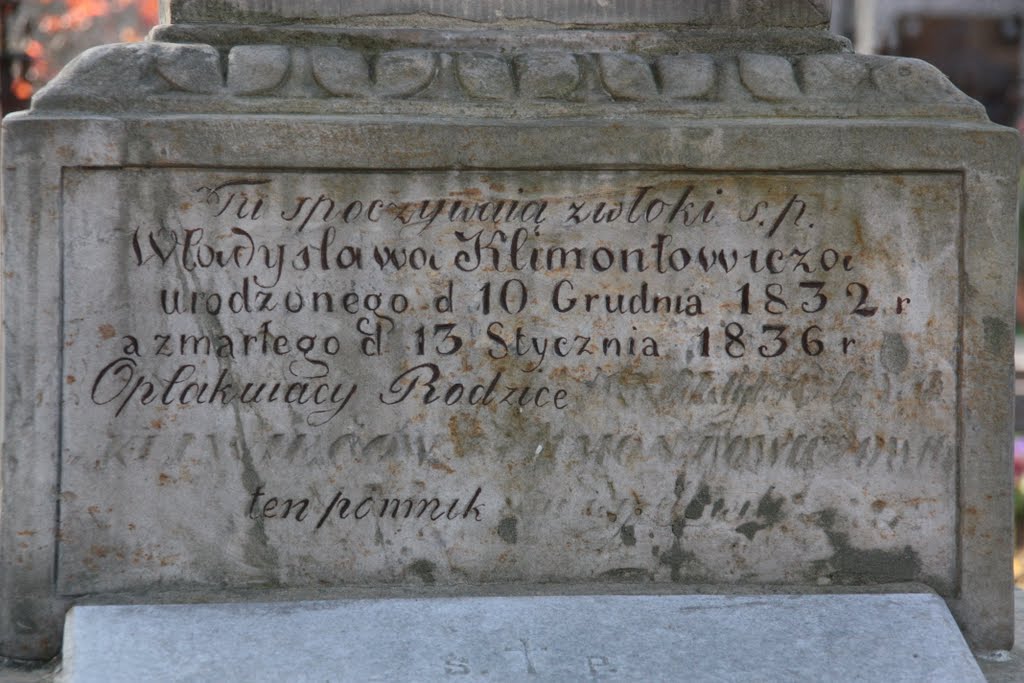 Tu spoczywaią zwłoki s.p.
Władysława Klimontowicza
urodzonego d 10 Grudnia 1832 r
a zmarłego d 13 Stycznia 1836 r
Opłakuiący Rodzice
ten pomnik
S. P.